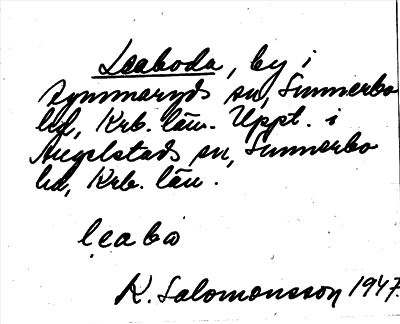 Leaboda, by i
Rymmaryds sn, Sunnerbo
hd, Krb. län. Uppt. i
Angelstads sn, Sunnerbo
hd, Krb. län.
leabo
K. Salomonsson 1947.